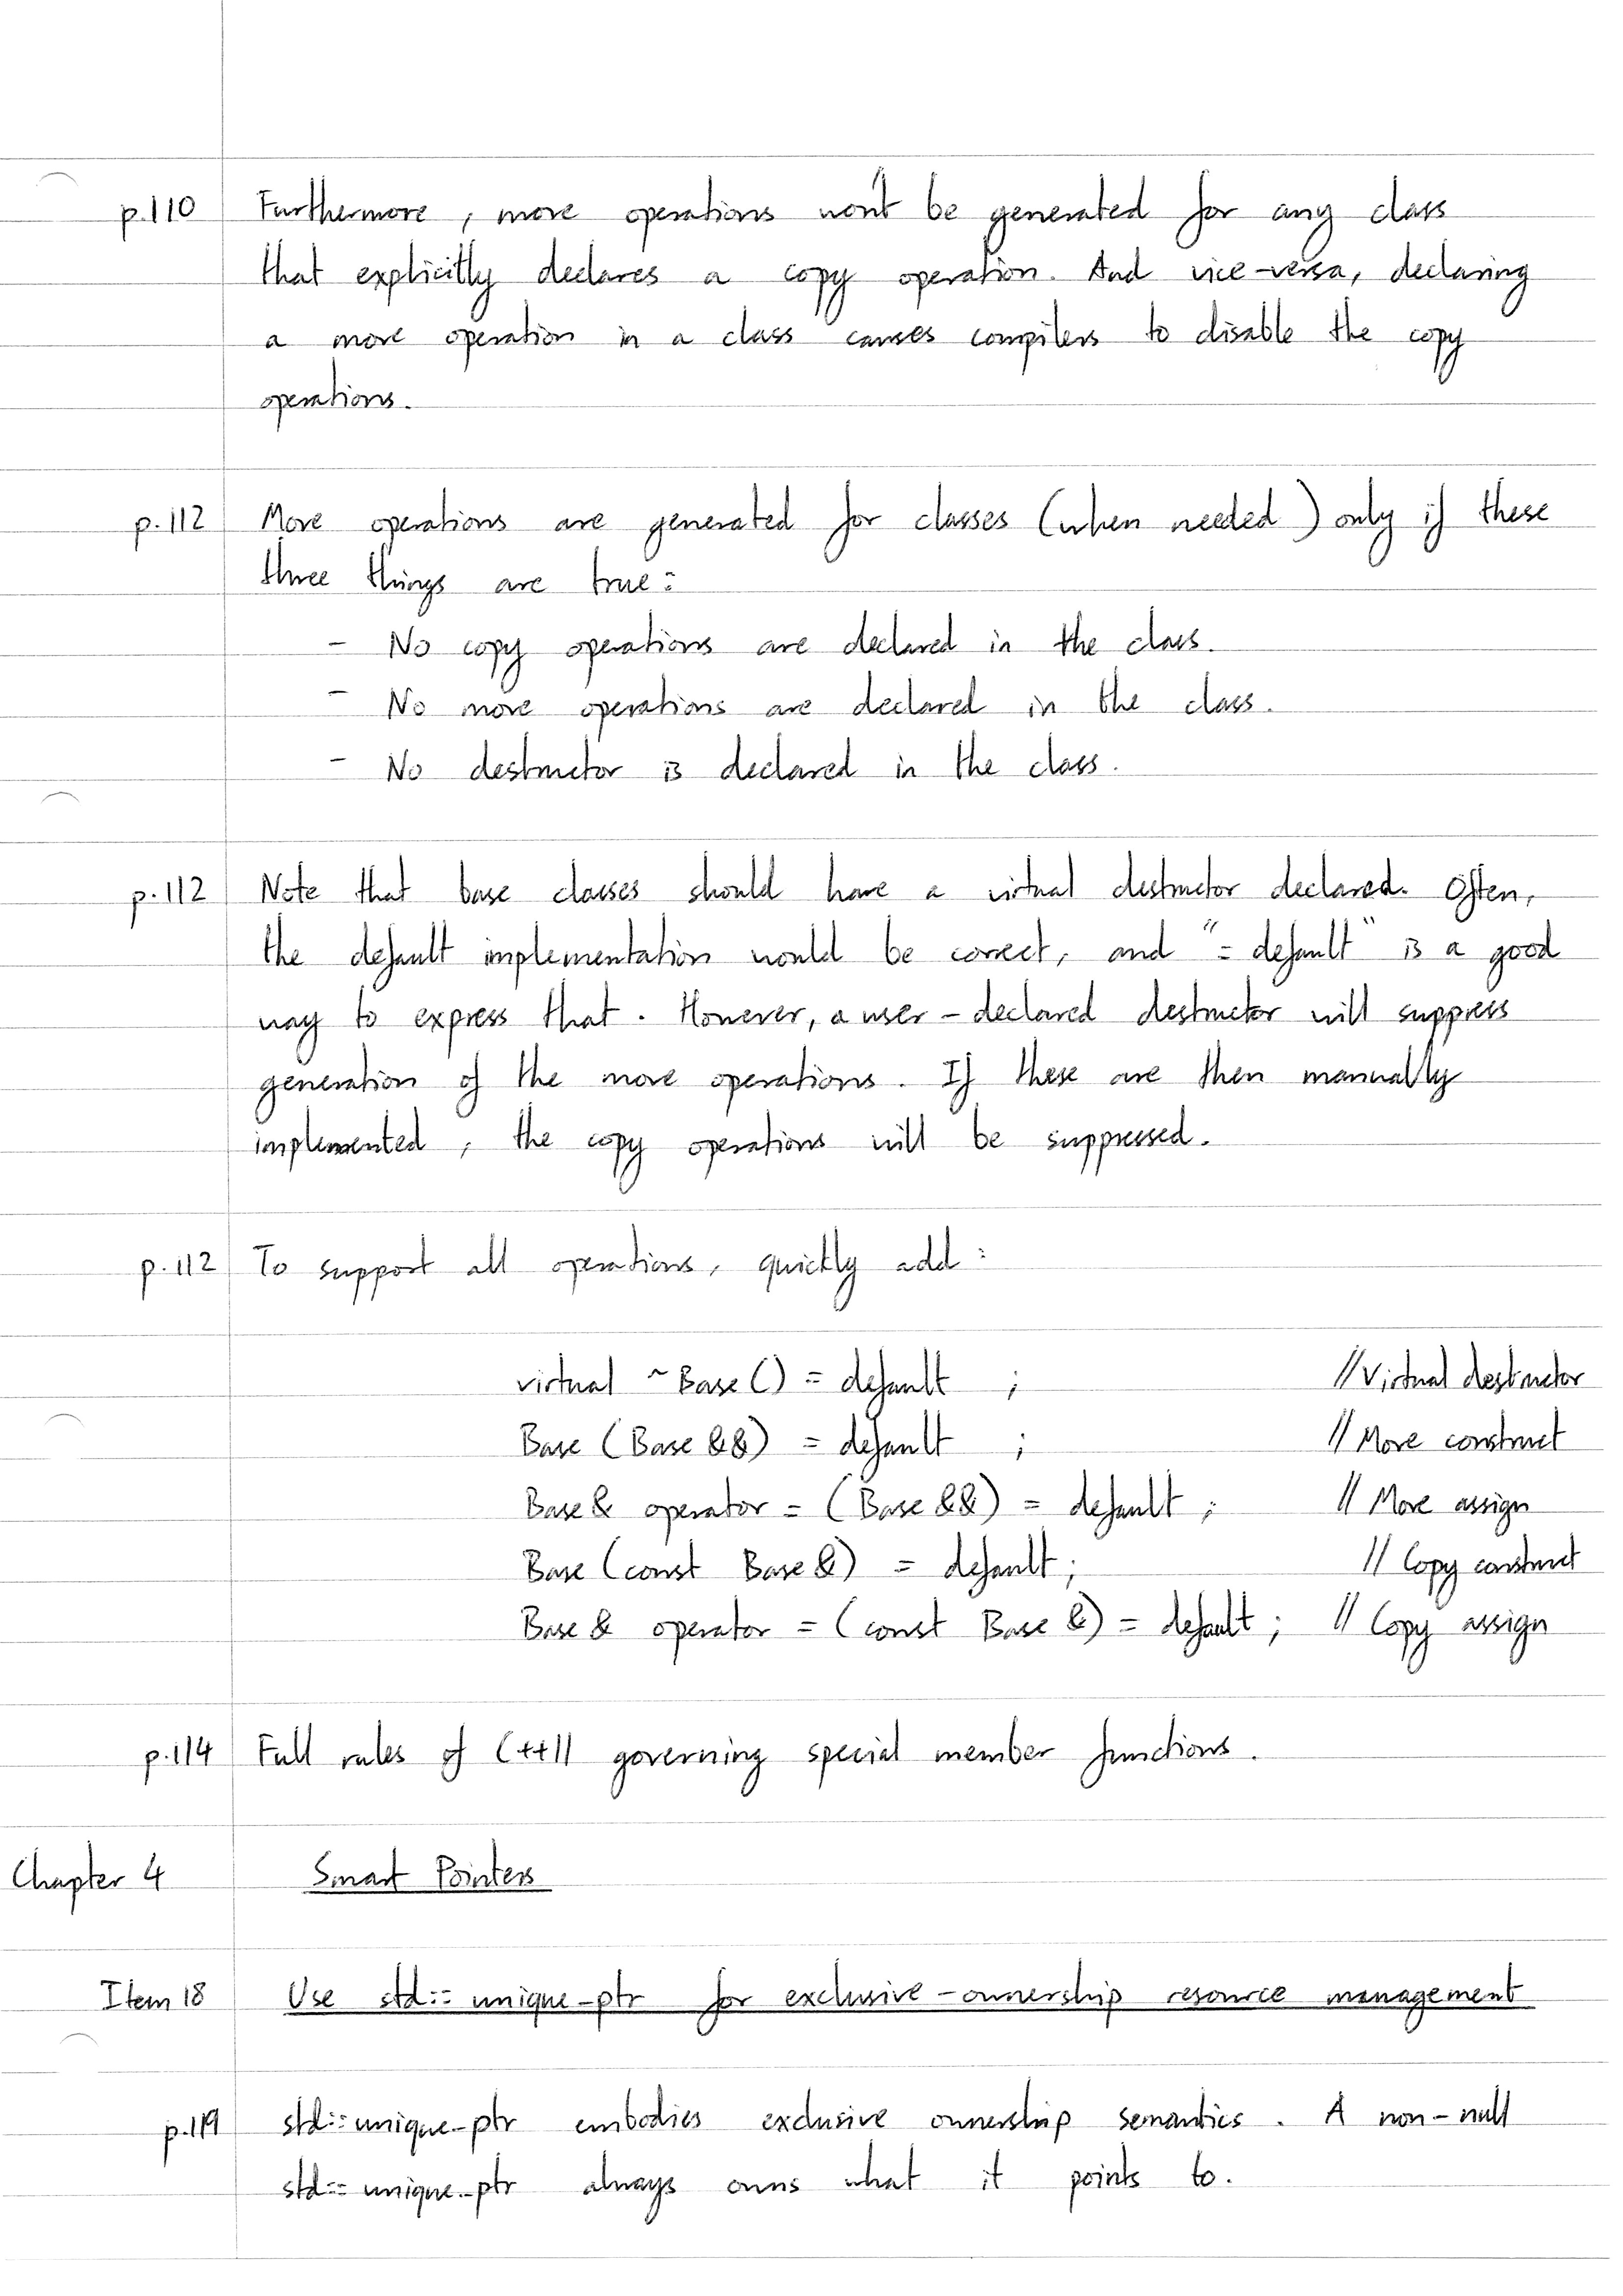 p.110 Furthermore, move operations won't be generated for any class
that explicitly declares a copy operation. And vice-versa, declaring
a move operation in a class causes compilers to disable the copy
operations.
p.112 Move operations are generated for classes (when needed) only if these
three things are true:
- No copy operations are declared in the class.
- No move operations are declared in the class.
- No destructor is declared in the class.
p.112 Note that base classes should have a virtual destructor declared. Often,
the default implementation would be correct, and "= default" is a good
way to express that. However, a user-declared destructor will suppress
generation of the move operations. If these are then manually
implemented, the copy operations will be suppressed.
p.112 To support all operations, quickly add:
virtual ~Base() = default ; // Virtual destructor
Base (Base &&) = default ; // Move construct
Base & operator = (Base &&) = default ; // Move assign
Base (const Base &) = default; // Copy construct
Base & operator = (const Base &) = default ; // Copy assign
p.114 Full rules of C++11 governing special member functions.
Chapter 4 Smart Pointers
Item 18 Use std::unique_ptr for exclusive-ownership resource management
p.119 std::unique_ptr embodies exclusive ownership semantics. A non-null
std::unique_ptr always owns what it points to.